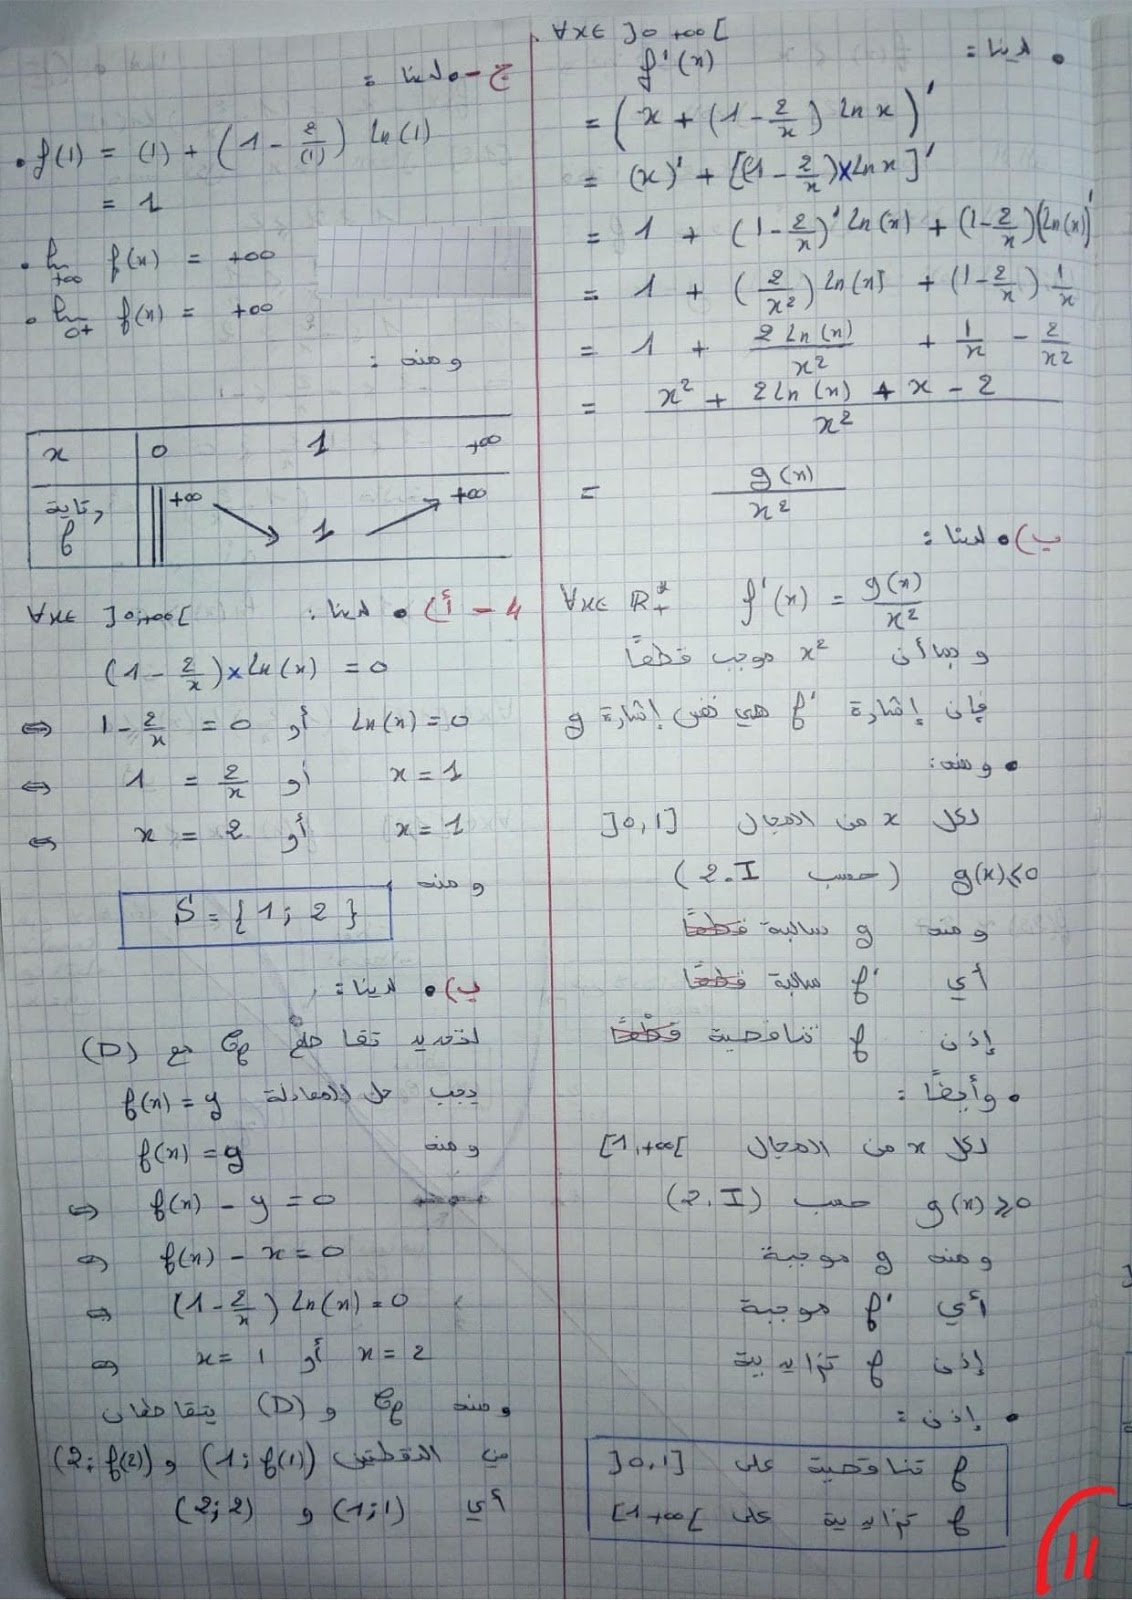 • لدينا : ∀x∈ ]0 +∞[
f'(x)
= (x + (1 - 2/x) ln x)'
= (x)' + [(1 - 2/x) × ln x]'
= 1 + (1 - 2/x)' ln(x) + (1 - 2/x)(ln(x))'
= 1 + (2/x²) ln(x) + (1 - 2/x) 1/x
= 1 + 2 ln(x)/x² + 1/x - 2/x²
= (x² + 2 ln(x) + x - 2)/x²
= g(x)/x²
ب) • لدينا :
∀x∈ ℝ₊* f'(x) = g(x)/x²
و بما أن x² موجب قطعًا
فإن إشارة f' هي نفس إشارة g
• ومنه :
لكل x من المجال ]0,1]
g(x)⩽0 (حسب 2.I)
ومنه g سالبة قطعًا
أي f' سالبة قطعًا
إذن f تناقصية قطعًا
• وأيضًا :
لكل x من المجال [1,+∞[
g(x)⩾0 حسب (2.I)
ومنه g موجبة
أي f' موجبة
إذن f تزايدية
• إذن :
f تناقصية على ]0,1]
f تزايدية على [1 +∞[
ج - • لدينا :
• f(1) = (1) + (1 - 2/(1)) ln(1)
= 1
• lim +∞ f(x) = +∞
• lim 0+ f(x) = +∞
ومنه :
x 0 1 +∞
رتابة f +∞ 1 +∞
4 - أ) • لدينا : ∀x∈ ]0;+∞[
(1 - 2/x) × ln(x) = 0
⇔ 1 - 2/x = 0 أو ln(x) = 0
⇔ 1 = 2/x أو x = 1
⇔ x = 2 أو x = 1
ومنه
S = {1; 2}
ب) • لدينا :
لتحديد تقاطع Cf مع (D)
يجب حل المعادلة f(x) = y
ومنه f(x) = y
⇔ f(x) - y = 0
⇔ f(x) - x = 0
⇔ (1 - 2/x) ln(x) = 0
⇔ x = 1 أو x = 2
ومنه Cf و (D) يتقاطعان
في النقطتين (1; f(1)) و (2; f(2))
أي (1;1) و (2;2)
11